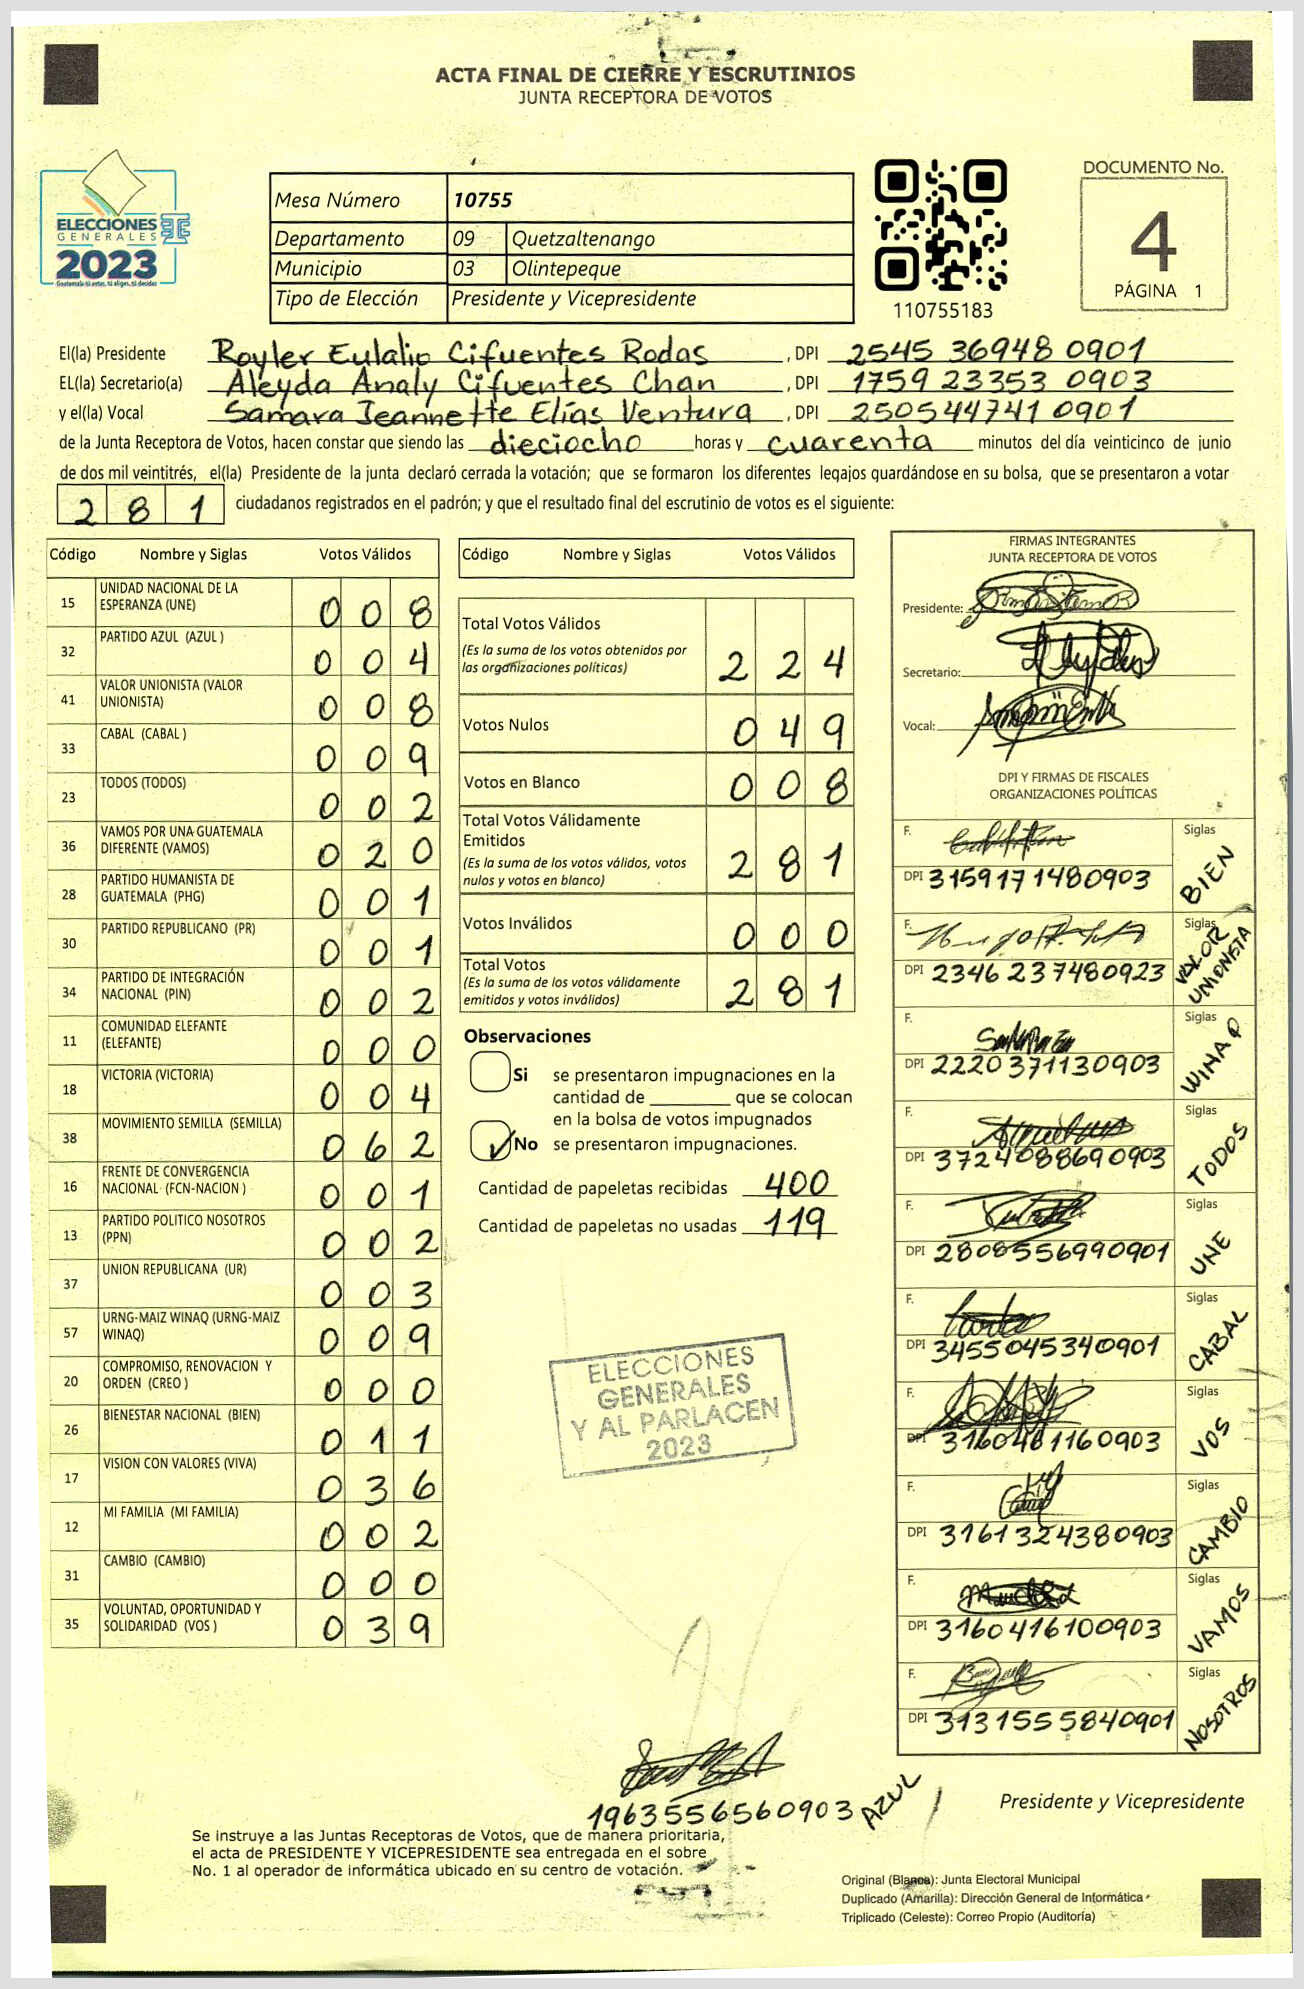 ACTA FINAL DE CIERRE Y ESCRUTINIOS
JUNTA RECEPTORA DE VOTOS
ELECCIONES
GENERALES
2023
Guatemala tú estas, tú eliges, tú decides
Mesa Número 10755
Departamento 09 Quetzaltenango
Municipio 03 Olintepeque
Tipo de Elección Presidente y Vicepresidente
110755183
DOCUMENTO No.
4
PÁGINA 1
El(la) Presidente Royler Eulalio Cifuentes Rodas, DPI 2545 36948 0901
EL(la) Secretario(a) Aleyda Analy Cifuentes Chan, DPI 1759 23353 0903
y el(la) Vocal Samara Jeannette Elías Ventura, DPI 250544741 0901
de la Junta Receptora de Votos, hacen constar que siendo las dieciocho horas y cuarenta minutos del día veinticinco de junio
de dos mil veintitrés, el(la) Presidente de la junta declaró cerrada la votación; que se formaron los diferentes legajos quardándose en su bolsa, que se presentaron a votar
281 ciudadanos registrados en el padrón; y que el resultado final del escrutinio de votos es el siguiente:
Código Nombre y Siglas Votos Válidos
15 UNIDAD NACIONAL DE LA ESPERANZA (UNE) 008
32 PARTIDO AZUL (AZUL ) 004
41 VALOR UNIONISTA (VALOR UNIONISTA) 008
33 CABAL (CABAL ) 009
23 TODOS (TODOS) 002
36 VAMOS POR UNA GUATEMALA DIFERENTE (VAMOS) 020
28 PARTIDO HUMANISTA DE GUATEMALA (PHG) 001
30 PARTIDO REPUBLICANO (PR) 001
34 PARTIDO DE INTEGRACIÓN NACIONAL (PIN) 002
11 COMUNIDAD ELEFANTE (ELEFANTE) 000
18 VICTORIA (VICTORIA) 004
38 MOVIMIENTO SEMILLA (SEMILLA) 062
16 FRENTE DE CONVERGENCIA NACIONAL (FCN-NACION ) 001
13 PARTIDO POLITICO NOSOTROS (PPN) 002
37 UNION REPUBLICANA (UR) 003
57 URNG-MAIZ WINAQ (URNG-MAIZ WINAQ) 009
20 COMPROMISO, RENOVACION Y ORDEN (CREO ) 000
26 BIENESTAR NACIONAL (BIEN) 011
17 VISION CON VALORES (VIVA) 036
12 MI FAMILIA (MI FAMILIA) 002
31 CAMBIO (CAMBIO) 000
35 VOLUNTAD, OPORTUNIDAD Y SOLIDARIDAD (VOS ) 039
Código Nombre y Siglas Votos Válidos
Total Votos Válidos
(Es la suma de los votos obtenidos por
las organizaciones políticas) 224
Votos Nulos 049
Votos en Blanco 008
Total Votos Válidamente
Emitidos
(Es la suma de los votos válidos, votos
nulos y votos en blanco) 281
Votos Inválidos 000
Total Votos
(Es la suma de los votos válidamente
emitidos y votos inválidos) 281
Observaciones
Si se presentaron impugnaciones en la
cantidad de ________ que se colocan
en la bolsa de votos impugnados
No se presentaron impugnaciones.
Cantidad de papeletas recibidas 400
Cantidad de papeletas no usadas 119
ELECCIONES
GENERALES
Y AL PARLACEN
2023
FIRMAS INTEGRANTES
JUNTA RECEPTORA DE VOTOS
Presidente:
Secretario:
Vocal:
DPI Y FIRMAS DE FISCALES
ORGANIZACIONES POLÍTICAS
F. Siglas
DPI 3159171480903 BIEN
F. Siglas
DPI 2346237480923 VALOR UNIONISTA
F. Siglas
DPI 2220371130903 WINAQ
F. Siglas
DPI 3724088690903 TODOS
F. Siglas
DPI 2808556990901 UNE
F. Siglas
DPI 3455045340901 CABAL
F. Siglas
DPI 3160481160903 VOS
F. Siglas
DPI 3161324380903 CAMBIO
F. Siglas
DPI 3160416100903 VAMOS
F. Siglas
DPI 3131555840901 NOSOTROS
1963556560903 AZUL
Presidente y Vicepresidente
Se instruye a las Juntas Receptoras de Votos, que de manera prioritaria,
el acta de PRESIDENTE Y VICEPRESIDENTE sea entregada en el sobre
No. 1 al operador de informática ubicado en su centro de votación.
Original (Blanca): Junta Electoral Municipal
Duplicado (Amarilla): Dirección General de Informática
Triplicado (Celeste): Correo Propio (Auditoría)